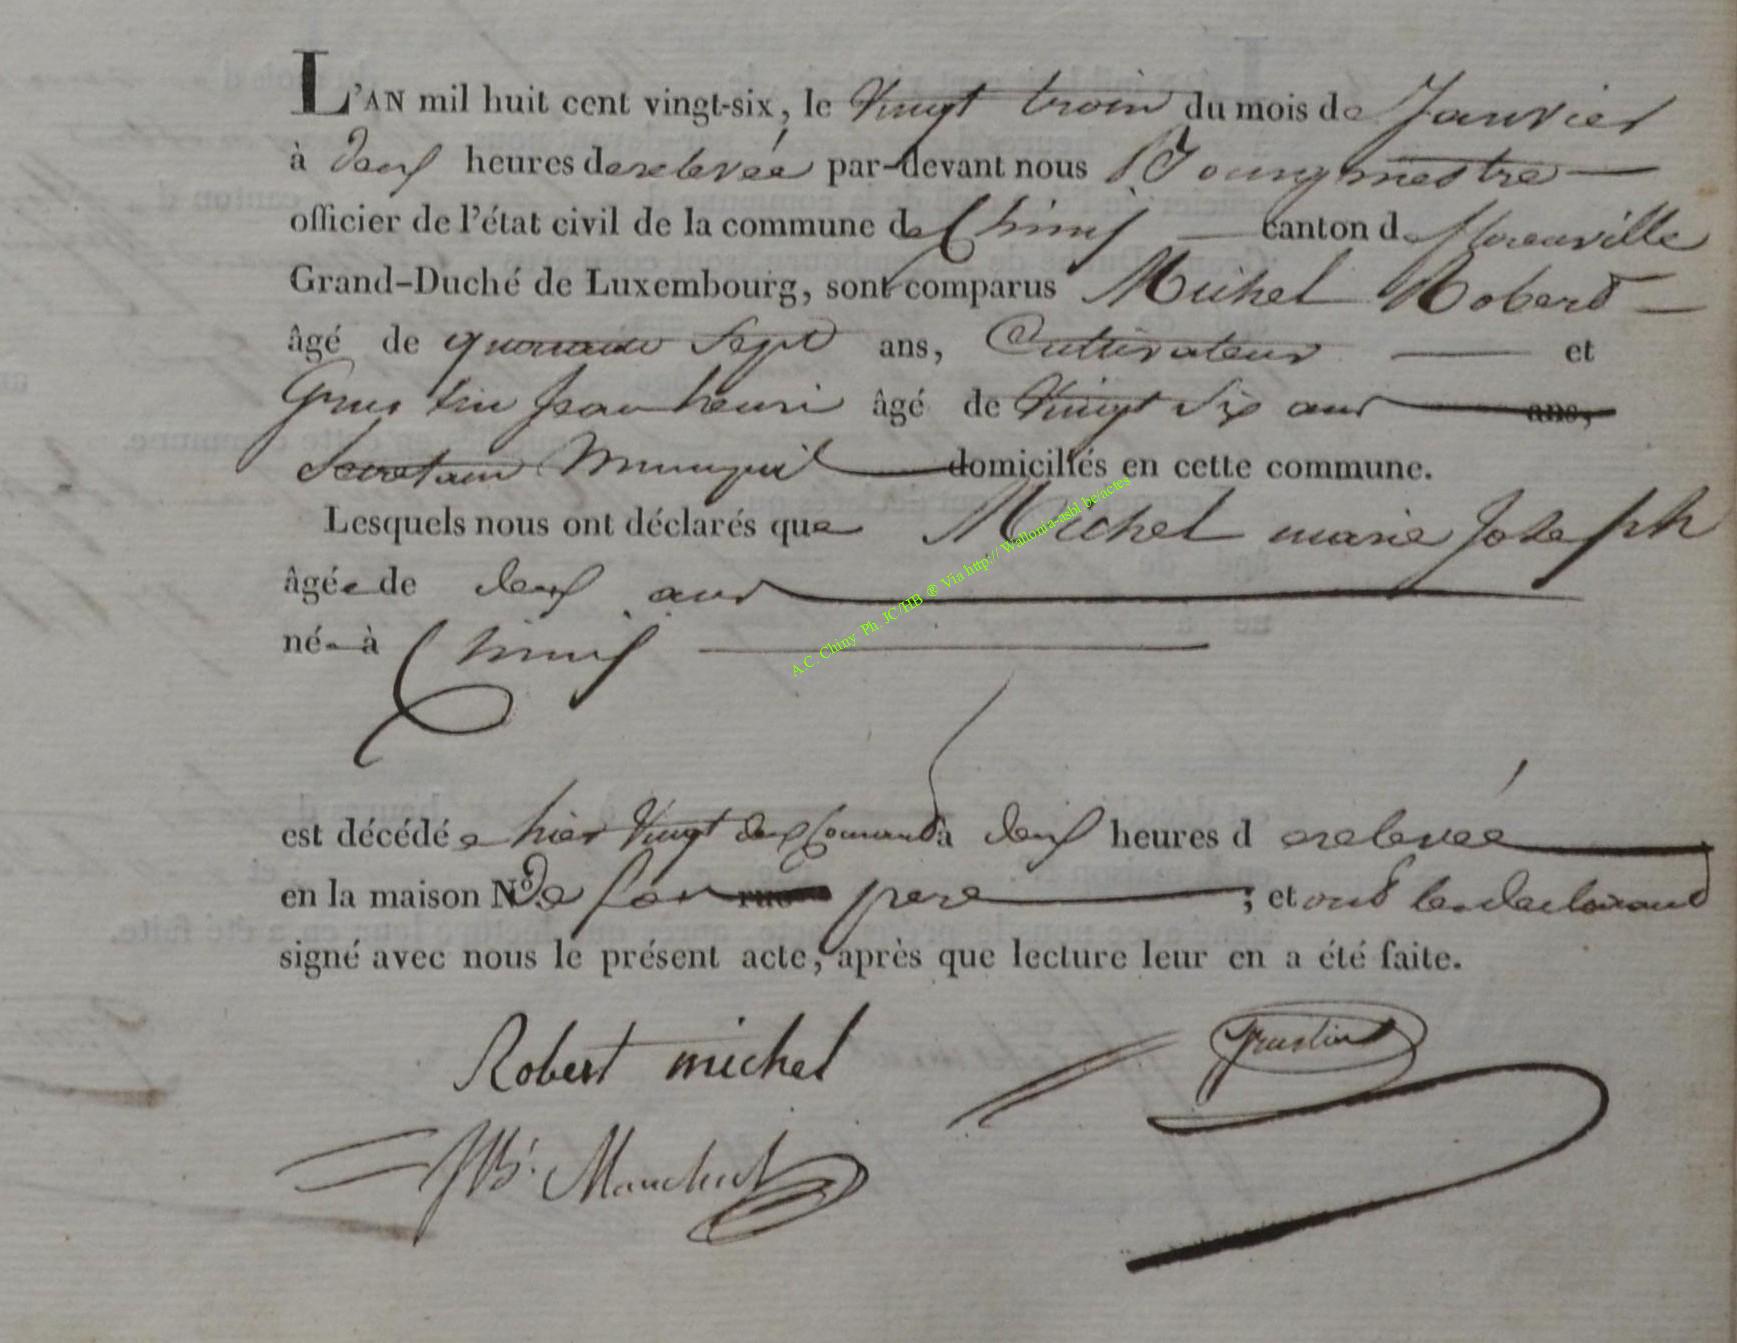 L'AN mil huit cent vingt-six, le Vingt trois du mois de Janvier
à deux heures de relevée par-devant nous Bourgmestre
officier de l'état civil de la commune de Chiny canton de florenville
Grand-Duché de Luxembourg, sont comparus Michel Robert
âgé de quarante Sept ans, Cultivateur et
Grustin Jean henri âgé de Vingt Six ans ans,
Secretaire Municipal domiciliés en cette commune.
Lesquels nous ont déclarés que Michel marie Joseph
âgée de deux ans
né à Chiny
est décédée hier Vingt deux Courant à deux heures de relevée
en la maison N.º de son rue pere ; et ont les declarant
signé avec nous le présent acte, après que lecture leur en a été faite.
Robert michel Grustin
A.C. Chiny Ph. JC/HB ® Via http:// Wallonia-asbl be/actes